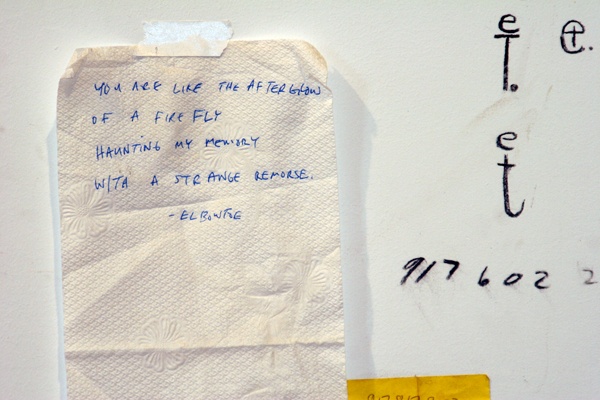 YOU ARE LIKE THE AFTERGLOW
OF A FIREFLY
HAUNTING MY MEMORY
WITH A STRANGE REMORSE.
- ELBOWTOE
e
T.
e
t
917 602 2